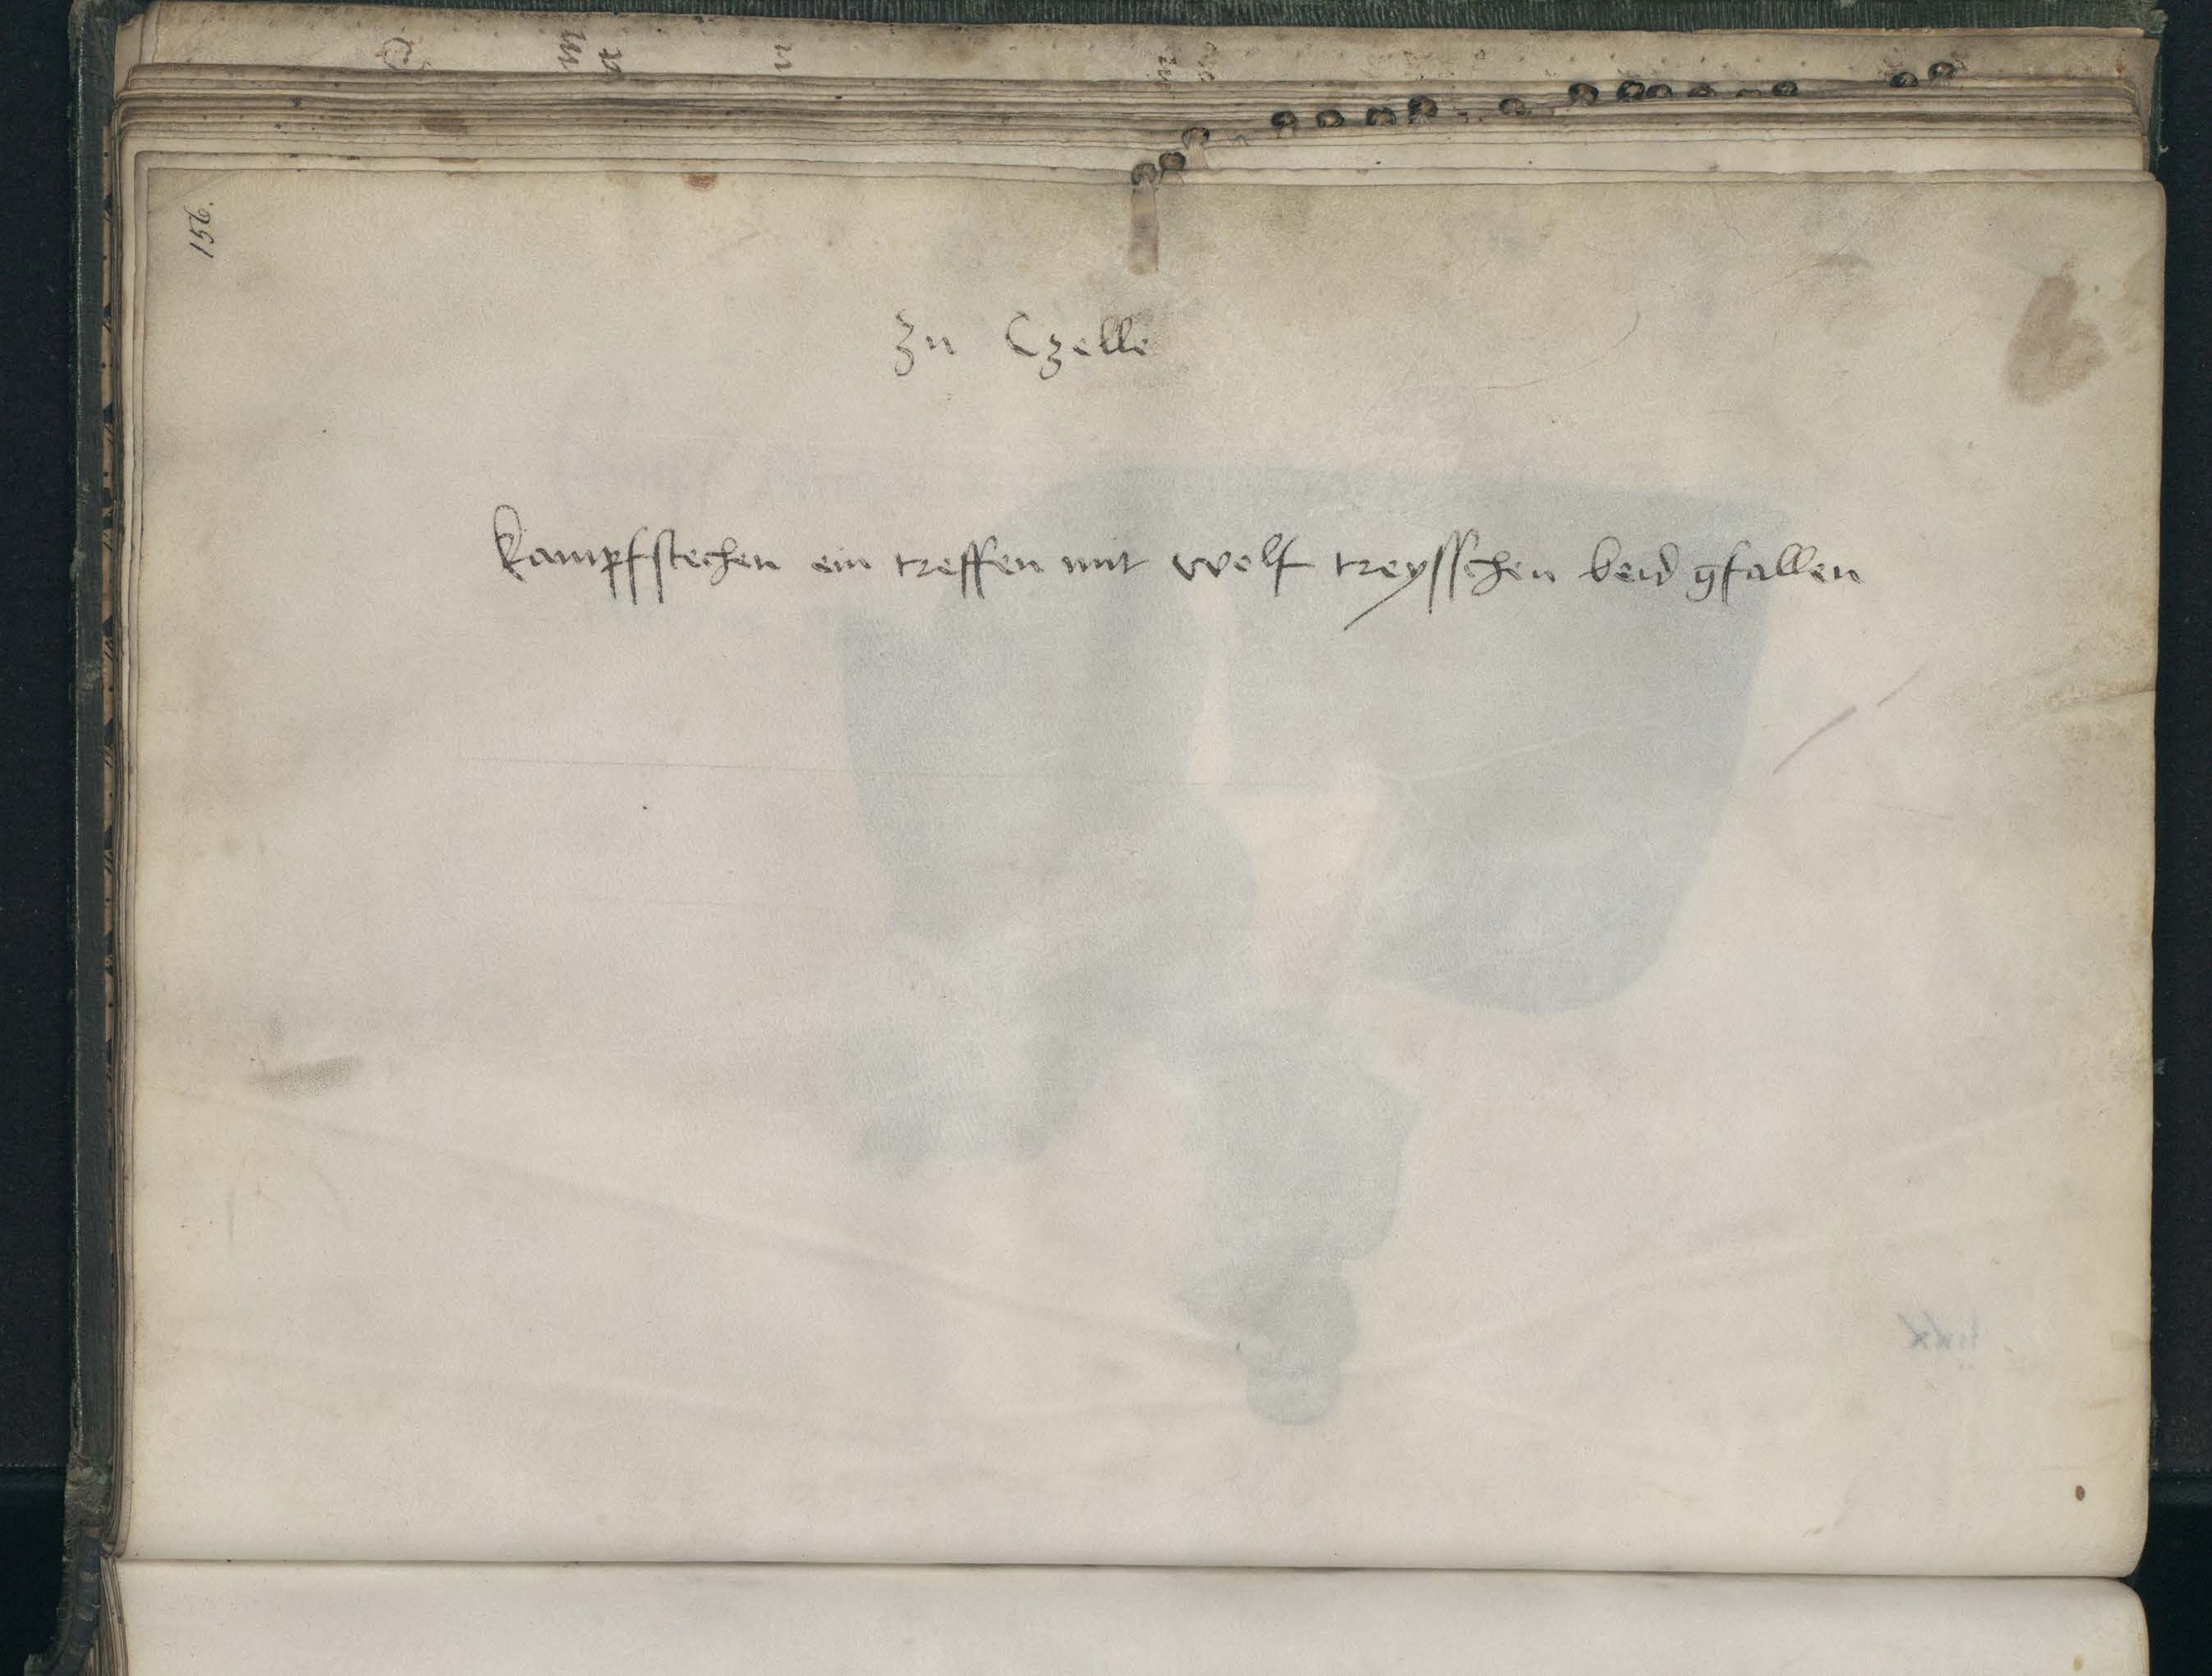 156.
Zu Czelle
Kampfstechen ein treffen mit wolf treysschen beid gfallen